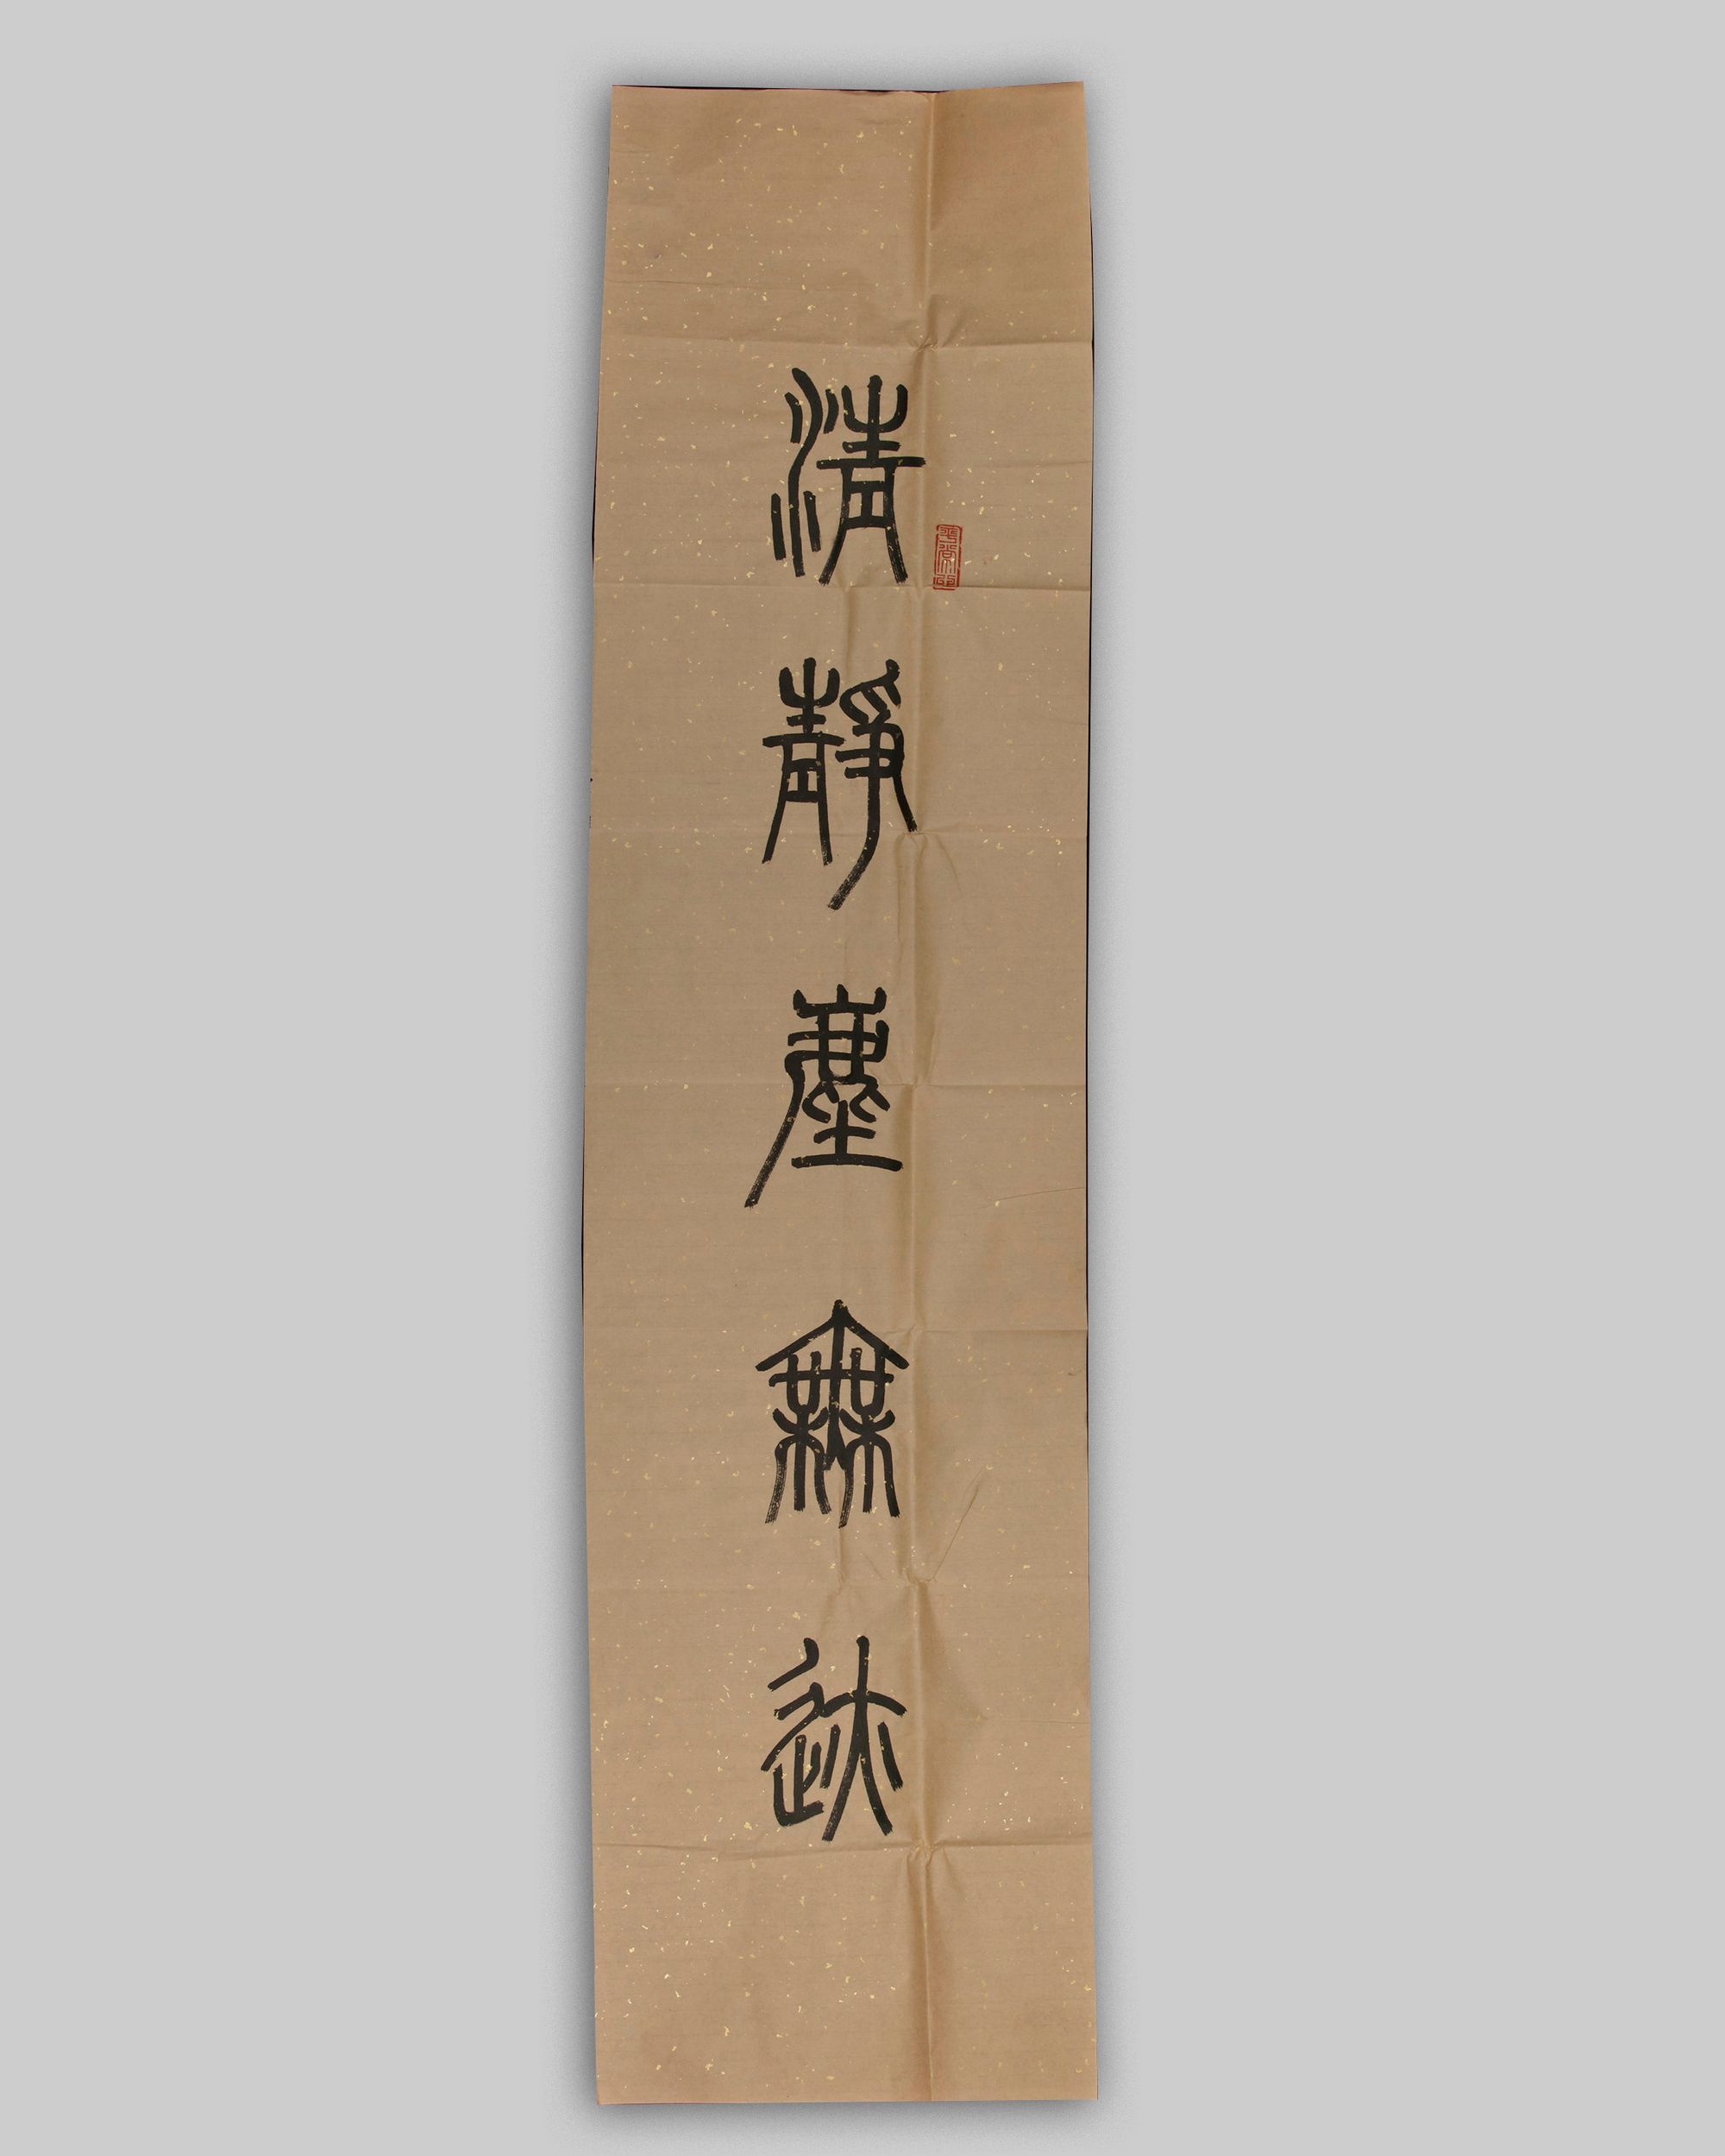 清靜塵無迹